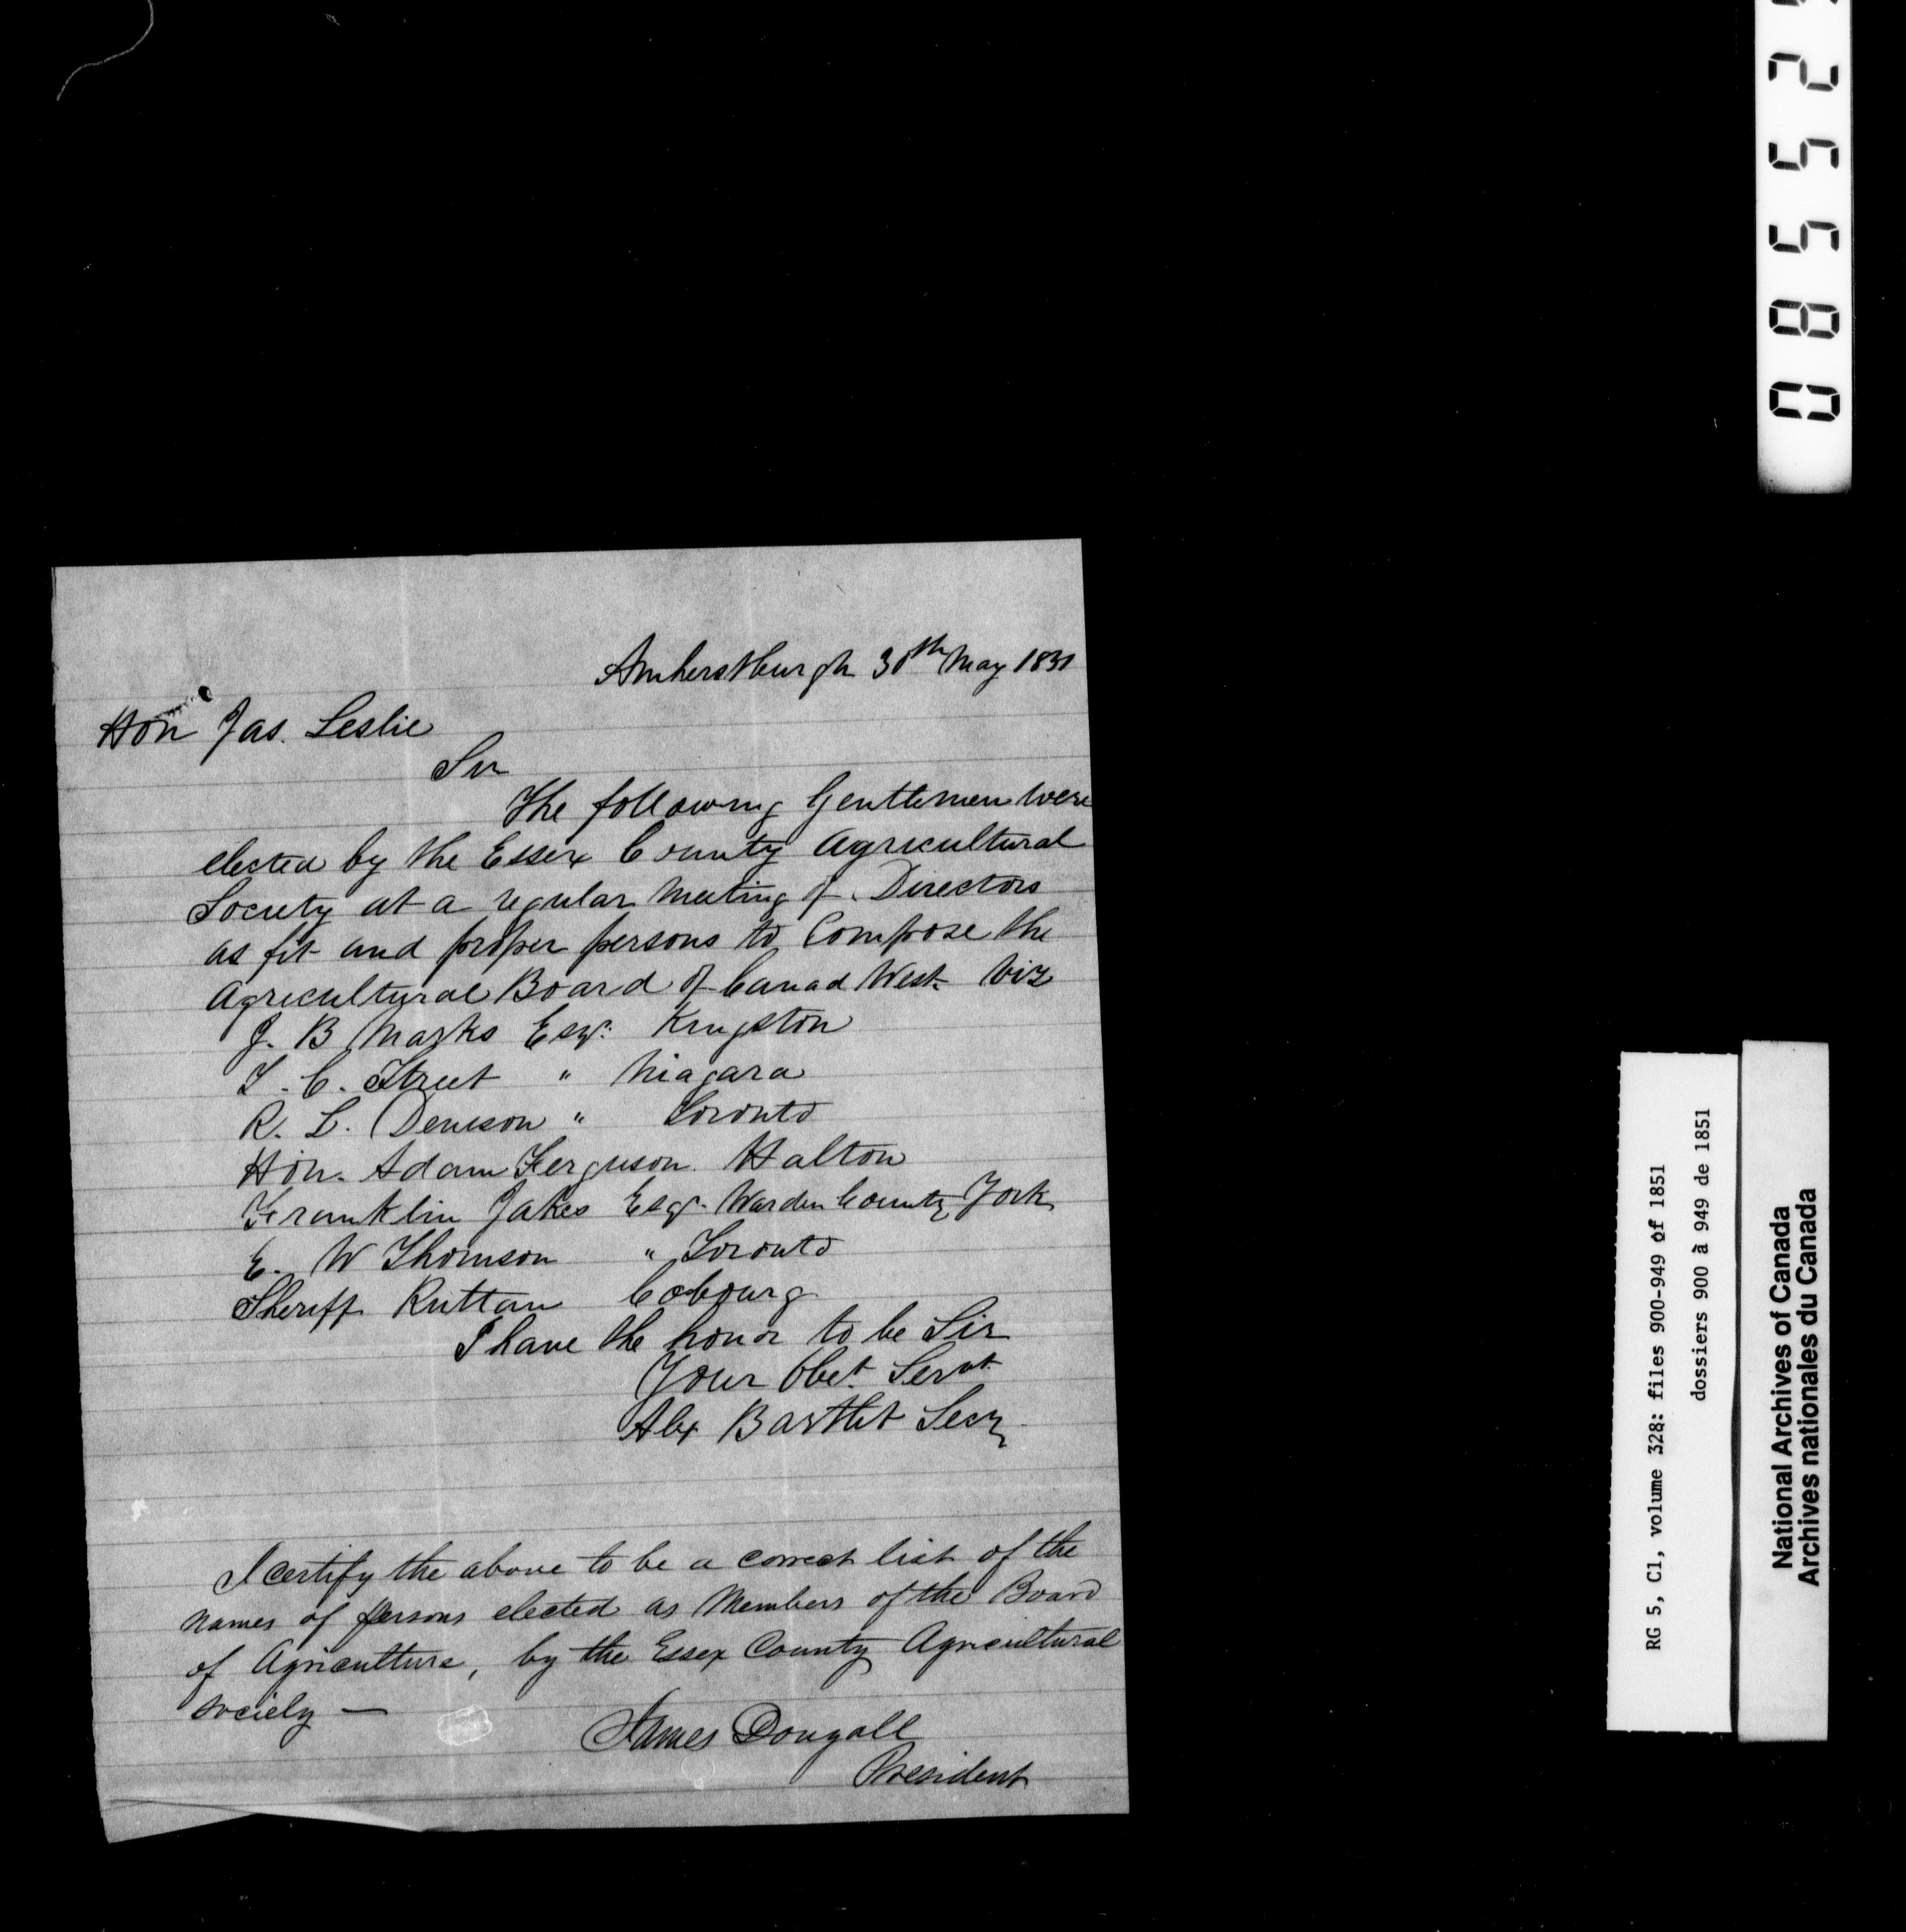 Amherstburgh 30th May 1851
Hon Jas. Leslie
Sir
The following Gentlemen were
elected by the Essex County Agricultural
Society at a regular meeting of Directors
as fit and proper persons to Compose the
Agricultural Board of Canad West. Viz
J. B Marks Esqr. Kingston
T. C. Street " Niagara
R. L. Denison " Toronto
Hon. Adam Ferguson. Halton
Franklin Jakes Esqr. Warden County York
E. W Thomson " Toronto
Sheriff Ruttan Cobourg
I have the honor to be Sir
Your Obet. Servt.
Alex Bartlet Secy
I certify the above to be a correct list of the
names of persons elected as Members of the Board
of Agriculture, by the Essex County Agricultural
society —
James Dougall
President
08552
RG 5, C1, volume 328: files 900-949 of 1851
dossiers 900 à 949 de 1851
National Archives of Canada
Archives nationales du Canada